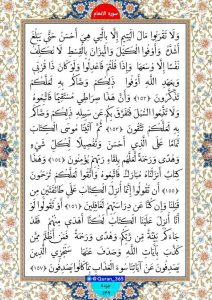 سورة الانعام
وَلَا تَقْرَبُوا مَالَ الْيَتِيمِ إِلَّا بِالَّتِي هِيَ أَحْسَنُ حَتَّىٰ يَبْلُغَ
أَشُدَّهُ وَأَوْفُوا الْكَيْلَ وَالْمِيزَانَ بِالْقِسْطِ لَا نُكَلِّفُ
نَفْسًا إِلَّا وُسْعَهَا وَإِذَا قُلْتُمْ فَاعْدِلُوا وَلَوْ كَانَ ذَا قُرْبَىٰ
وَبِعَهْدِ اللَّهِ أَوْفُوا ذَٰلِكُمْ وَصَّاكُمْ بِهِ لَعَلَّكُمْ
تَذَكَّرُونَ ﴿١٥٢﴾ وَأَنَّ هَٰذَا صِرَاطِي مُسْتَقِيمًا فَاتَّبِعُوهُ
وَلَا تَتَّبِعُوا السُّبُلَ فَتَفَرَّقَ بِكُمْ عَنْ سَبِيلِهِ ذَٰلِكُمْ وَصَّاكُمْ
بِهِ لَعَلَّكُمْ تَتَّقُونَ ﴿١٥٣﴾ ثُمَّ آتَيْنَا مُوسَى الْكِتَابَ
تَمَامًا عَلَى الَّذِي أَحْسَنَ وَتَفْصِيلًا لِكُلِّ شَيْءٍ
وَهُدًى وَرَحْمَةً لَعَلَّهُمْ بِلِقَاءِ رَبِّهِمْ يُؤْمِنُونَ ﴿١٥٤﴾ وَهَٰذَا
كِتَابٌ أَنْزَلْنَاهُ مُبَارَكٌ فَاتَّبِعُوهُ وَاتَّقُوا لَعَلَّكُمْ تُرْحَمُونَ
﴿١٥٥﴾ أَنْ تَقُولُوا إِنَّمَا أُنْزِلَ الْكِتَابُ عَلَىٰ طَائِفَتَيْنِ مِنْ
قَبْلِنَا وَإِنْ كُنَّا عَنْ دِرَاسَتِهِمْ لَغَافِلِينَ ﴿١٥٦﴾ أَوْ تَقُولُوا لَوْ
أَنَّا أُنْزِلَ عَلَيْنَا الْكِتَابُ لَكُنَّا أَهْدَىٰ مِنْهُمْ فَقَدْ
جَاءَكُمْ بَيِّنَةٌ مِنْ رَبِّكُمْ وَهُدًى وَرَحْمَةٌ فَمَنْ أَظْلَمُ مِمَّنْ
كَذَّبَ بِآيَاتِ اللَّهِ وَصَدَفَ عَنْهَا سَنَجْزِي الَّذِينَ
يَصْدِفُونَ عَنْ آيَاتِنَا سُوءَ الْعَذَابِ بِمَا كَانُوا يَصْدِفُونَ ﴿١٥٧﴾
@Quran_365
١٤٩